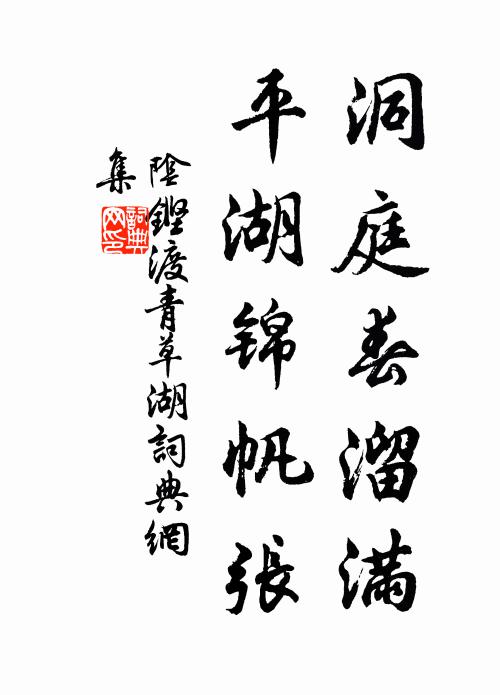 洞庭春溜滿
平湖錦帆張
陰鏗渡青草湖詞典網
集
詞典
网印